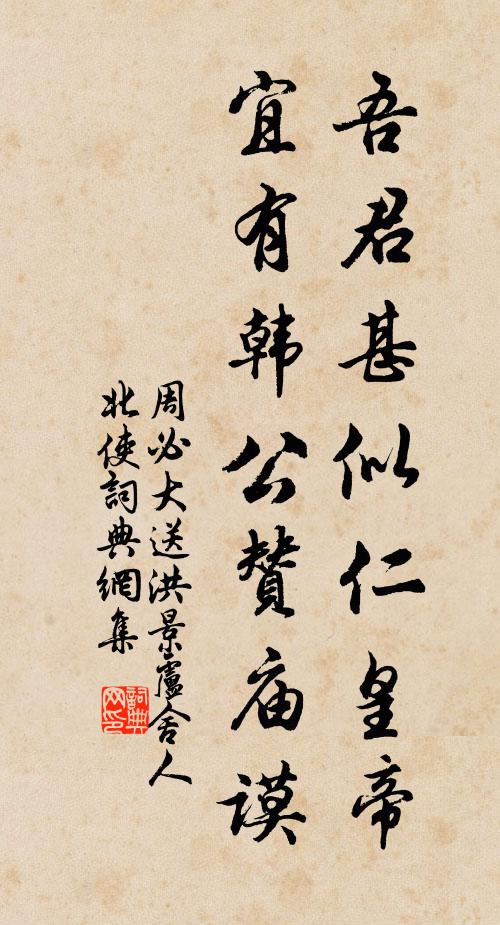 吾君甚似仁皇帝
宜有韩公赞庙谟
周必大送洪景盧舍人
北使詞典網集
詞典网印